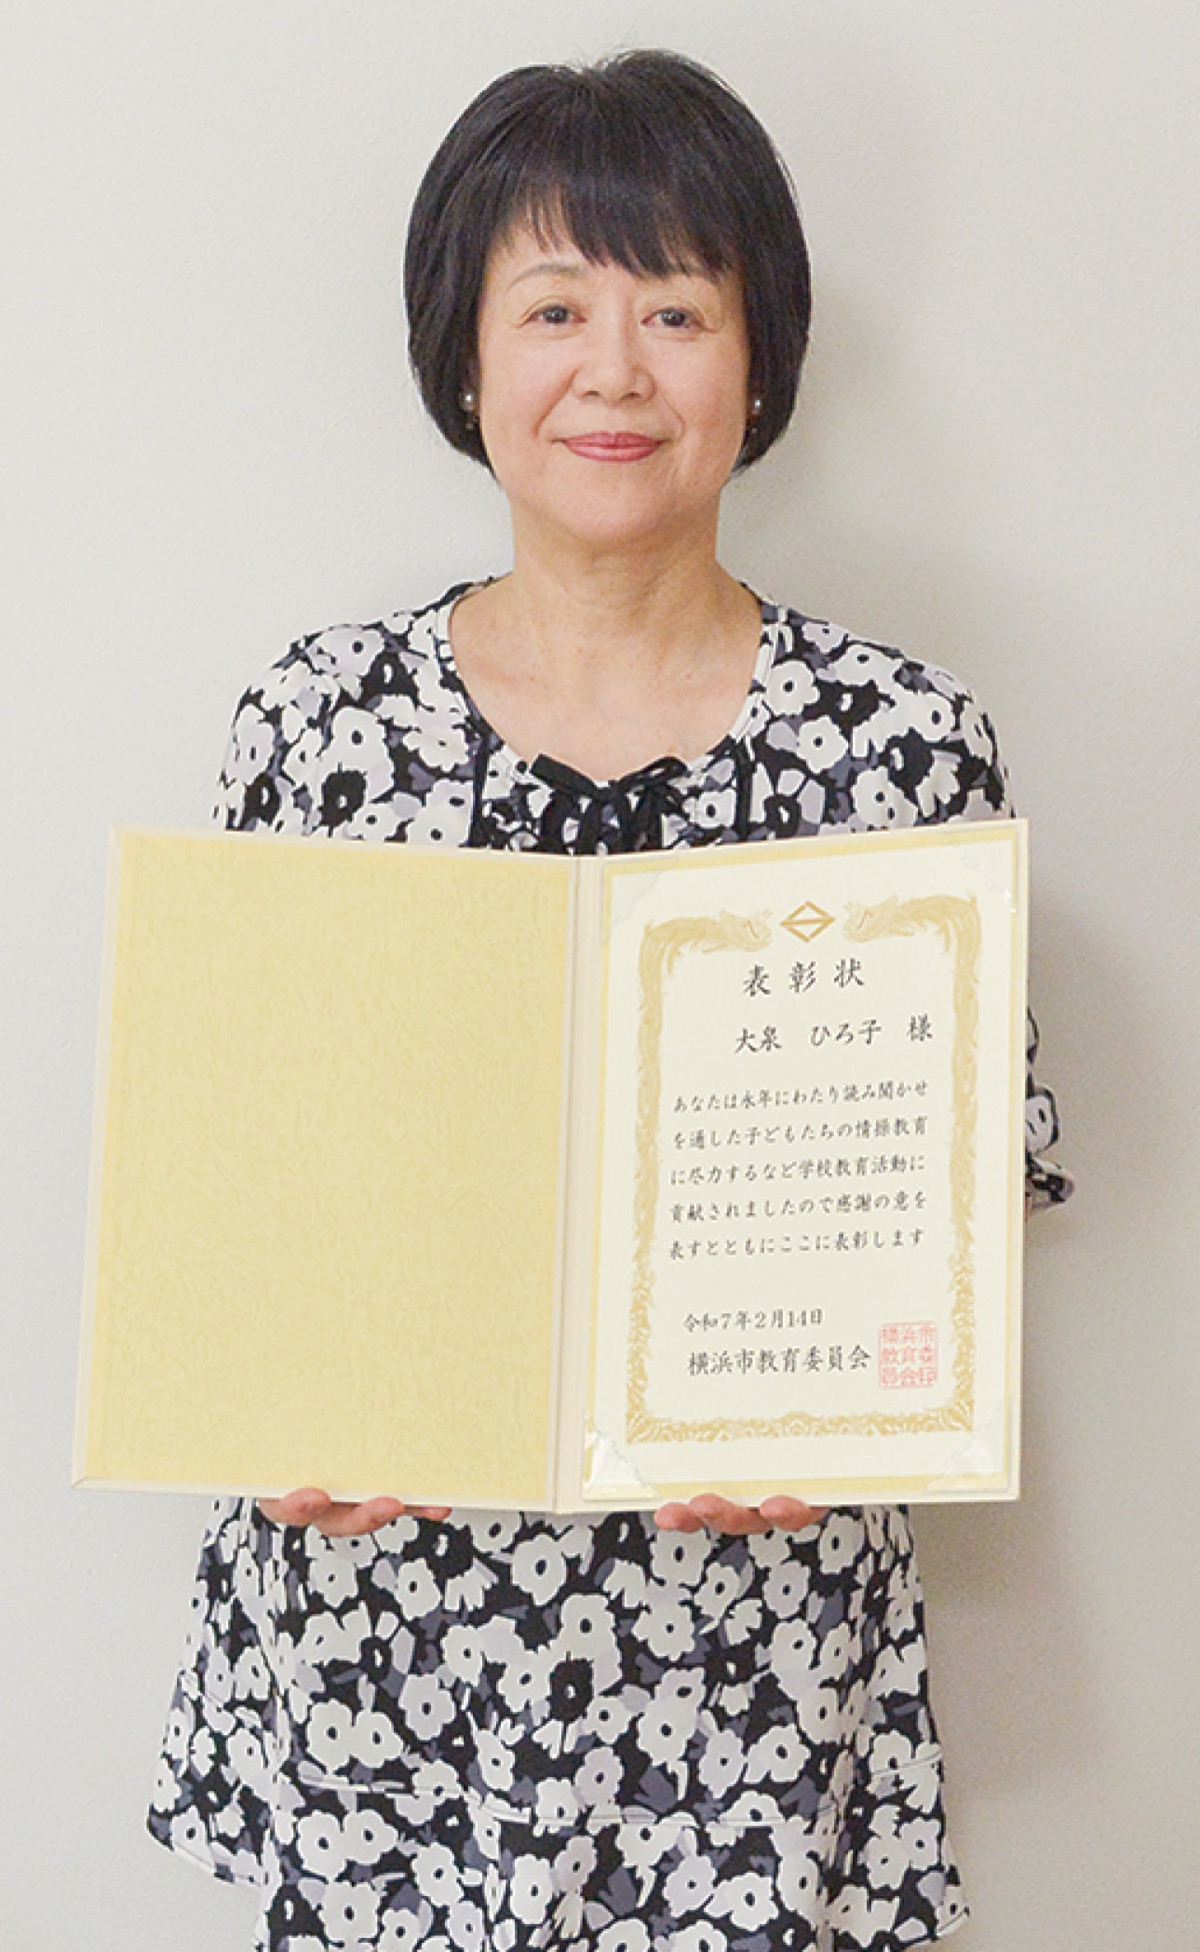 表彰状
大泉 ひろ子 様
あなたは永年にわたり読み聞かせ
を通した子どもたちの情操教育
に尽力するなど学校教育活動に
貢献されましたので感謝の意を
表すとともにここに表彰します
令和7年2月14日
横浜市教育委員会
横浜市
教育委
員会印